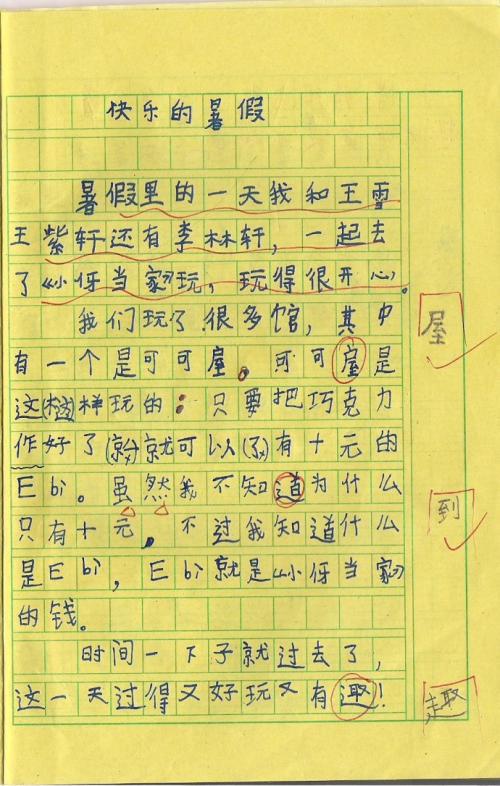 快乐的暑假
暑假里的一天我和王雪
王紫轩还有李林轩，一起去
了《小伢当家》玩，玩得很开心。
我们玩了很多馆，其中
有一个是可可屋。可可屋是
屋
这样玩的：只要把巧克力
作好了就可以有十元的
Ebi。虽然我不知道为什么
到
只有十元，不过我知道什么
是Ebi，Ebi就是《小伢当家》
的钱。
时间一下子就过去了，
这一天过得又好玩又有趣！
趣